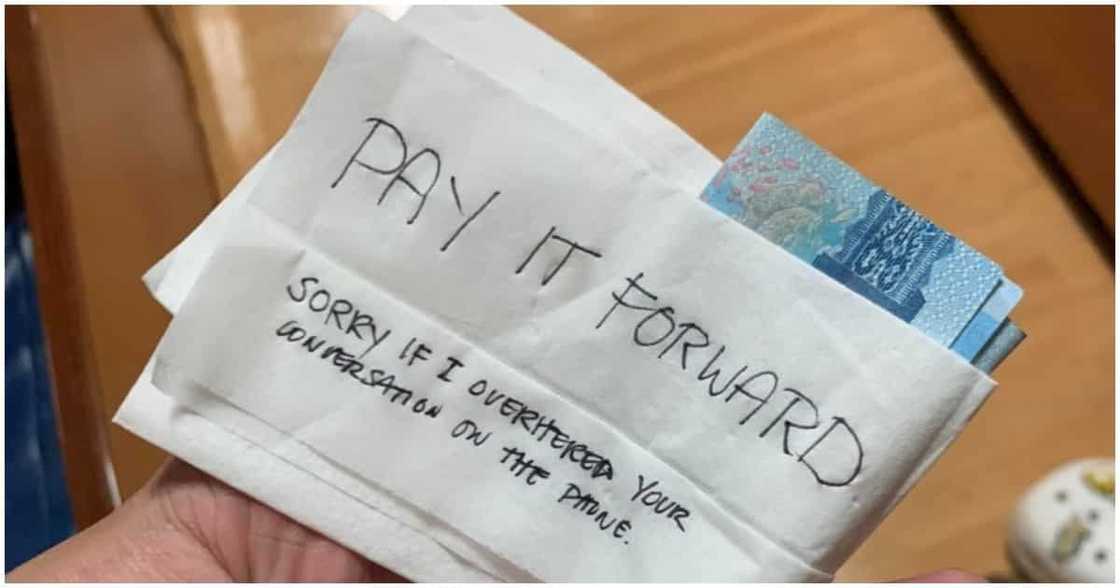 PAY IT FORWARD
SORRY IF I OVERHERED YOUR
CONVERSATION ON THE PHONE.